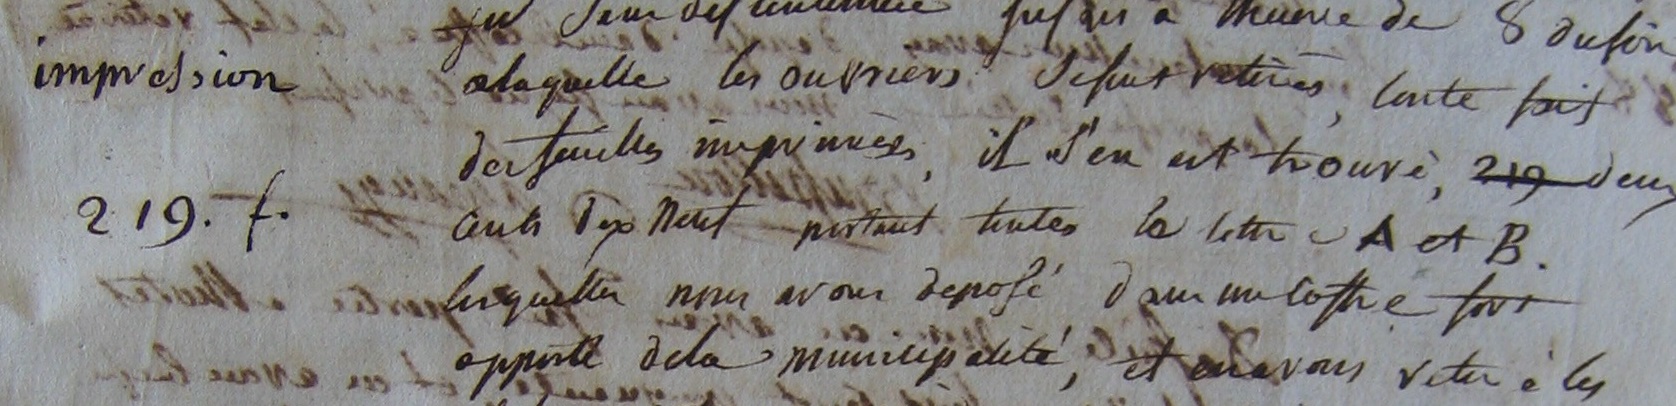 jusques a l'heure de 8 du soir
impression alaquelle les ouvriers se sont retirés, conte fait
des feuilles imprimées, il s'en est trouvé, 219 deux
219. f. cents dix neuf portant toutes la lettre A et B.
lesquelles nous avons deposé dans un coffre fort
apporté dela municipalité, et en avons retiré les